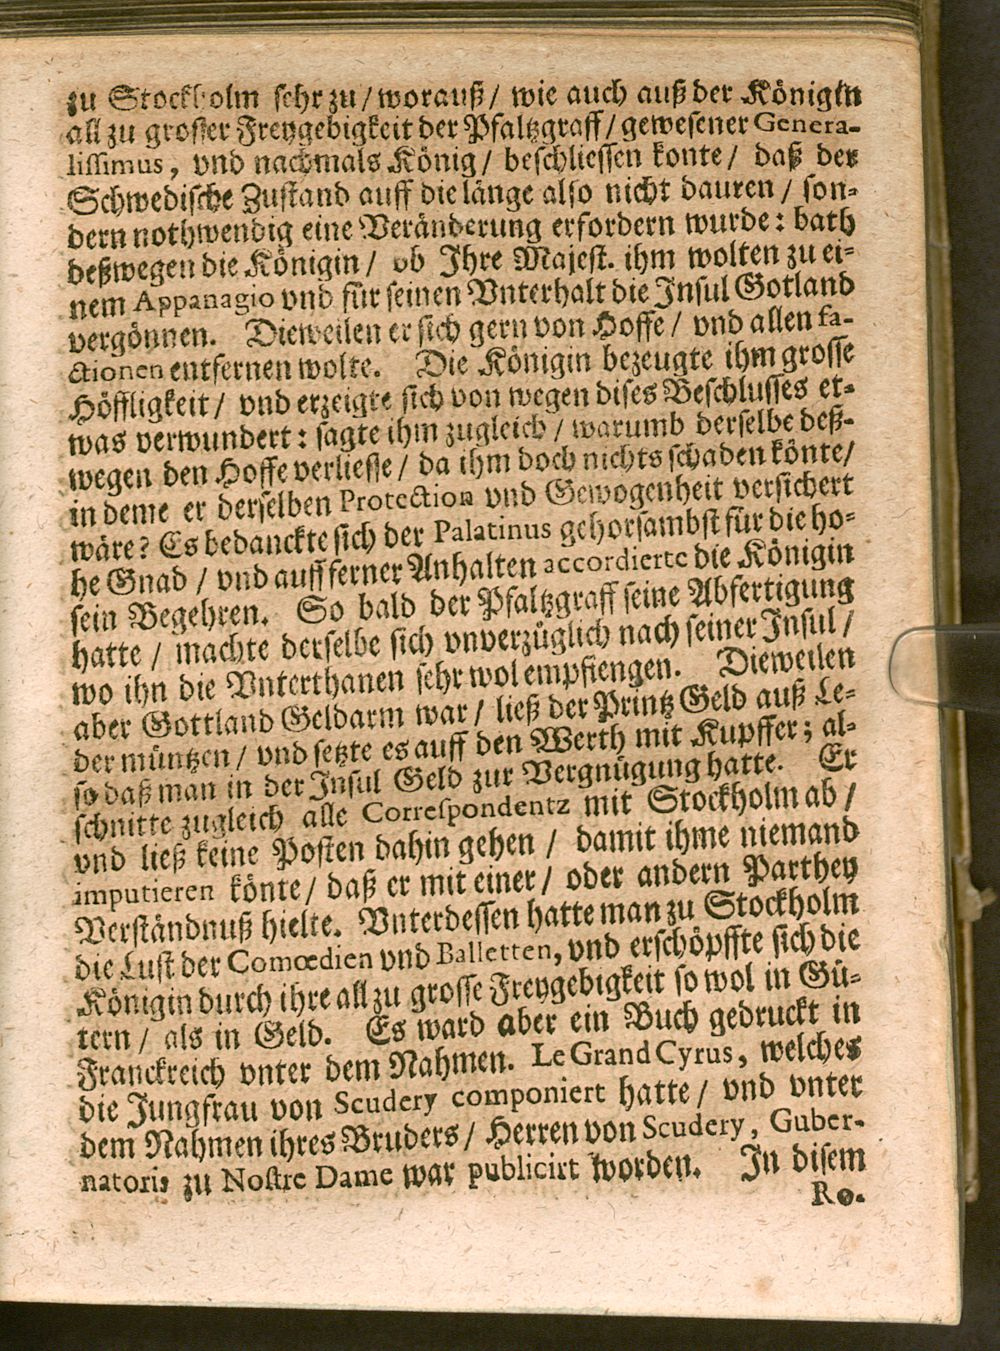 zu Stockholm sehr zu / worauß / wie auch auß der Königin
all zu grosser Freygebigkeit der Pfaltzgraff / gewesener Genera-
lissimus, vnd nachmals König / beschliessen konte / daß der
Schwedische Zustand auff die länge also nicht dauren / son-
dern nothwendig eine Veränderung erfordern wurde: bath
deßwegen die Königin / ob Ihre Majest. ihm wolten zu ei-
nem Appanagio vnd für seinen Vnterhalt die Insul Gotland
vergönnen. Dieweilen er sich gern von Hoffe / vnd allen fa-
ctionen entfernen wolte. Die Königin bezeugte ihm grosse
Höffligkeit / vnd erzeigte sich von wegen dises Beschlusses et-
was verwundert: sagte ihm zugleich / warumb derselbe deß-
wegen den Hoffe verliesse / da ihm doch nichts schaden könte /
in deme er derselben Protection vnd Gewogenheit versichert
wäre? Es bedanckte sich der Palatinus gehorsambst für die ho-
he Gnad / vnd auff ferner Anhalten accordierte die Königin
sein Begehren. So bald der Pfaltzgraff seine Abfertigung
hatte / machte derselbe sich vnverzüglich nach seiner Insul /
wo ihn die Vnterthanen sehr wol empfiengen. Dieweilen
aber Gottland Geldarm war / ließ der Printz Geld auß Le-
der müntzen / vnd setzte es auff den Werth mit Kupffer; al-
so daß man in der Insul Geld zur Vergnügung hatte. Er
schnitte zugleich alle Correspondentz mit Stockholm ab /
vnd ließ keine Posten dahin gehen / damit ihme niemand
imputieren könte / daß er mit einer / oder andern Parthey
Verständnuß hielte. Vnterdessen hatte man zu Stockholm
die Lust der Comœdien vnd Balletten, vnd erschöpffte sich die
Königin durch ihre all zu grosse Freygebigkeit so wol in Gü-
tern / als in Geld. Es ward aber ein Buch gedruckt in
Franckreich vnter dem Nahmen. Le Grand Cyrus, welches
die Jungfrau von Scudery componiert hatte / vnd vnter
dem Nahmen ihres Bruders / Herren von Scudery, Guber-
natoris zu Nostre Dame war publicirt worden. In disem
Ro-